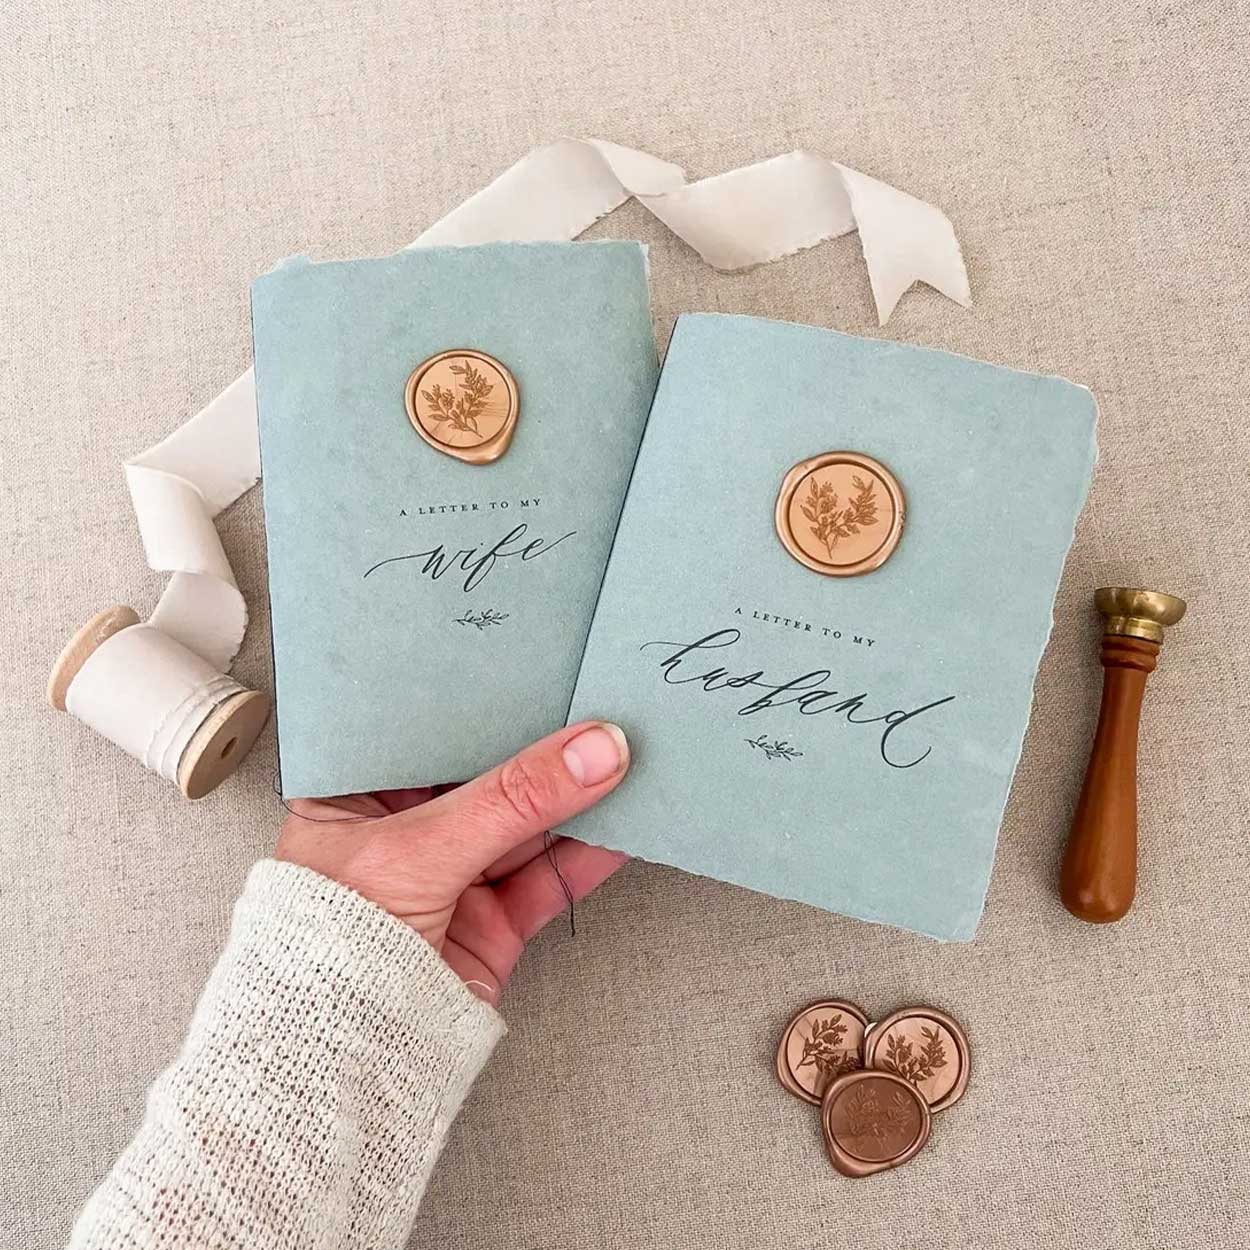 A LETTER TO MY
wife
A LETTER TO MY
husband